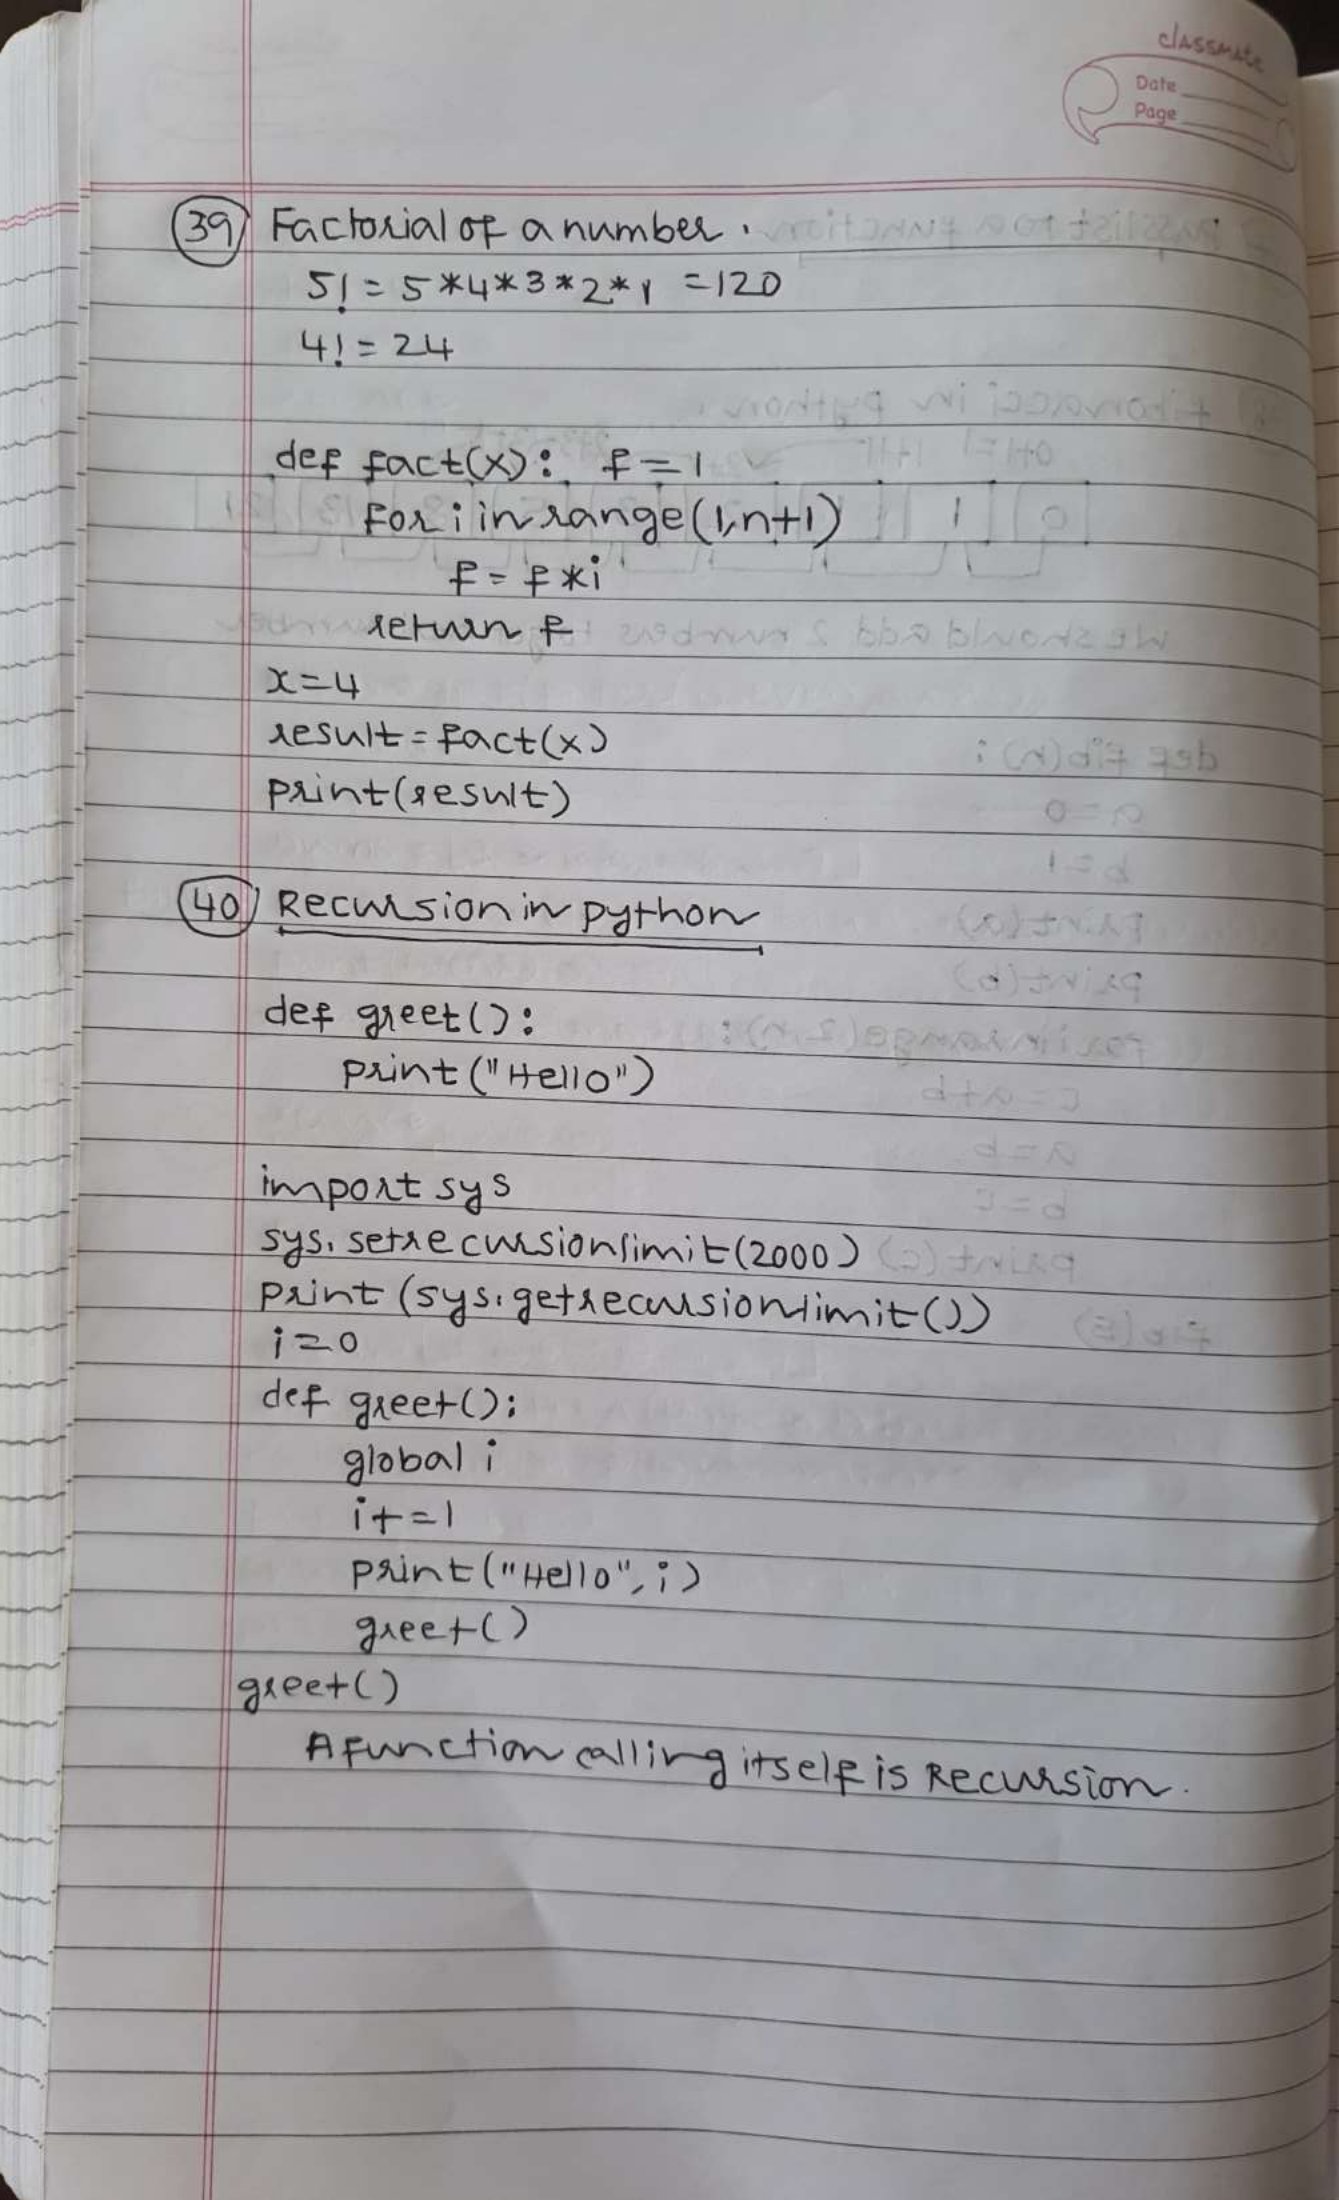 classmate
Date
Page
39 Factorial of a number.
5! = 5*4*3*2*1 =120
4! = 24
def fact(x): f=1
for i in range(1,n+1)
f = f*i
return f
x=4
result = fact(x)
print(result)
40 Recursion in python
def greet():
print("Hello")
import sys
sys.setrecursionlimit(2000)
print (sys.getrecursionlimit())
i=0
def greet():
global i
i+=1
print("Hello", i)
greet()
greet()
A function calling itself is Recursion.